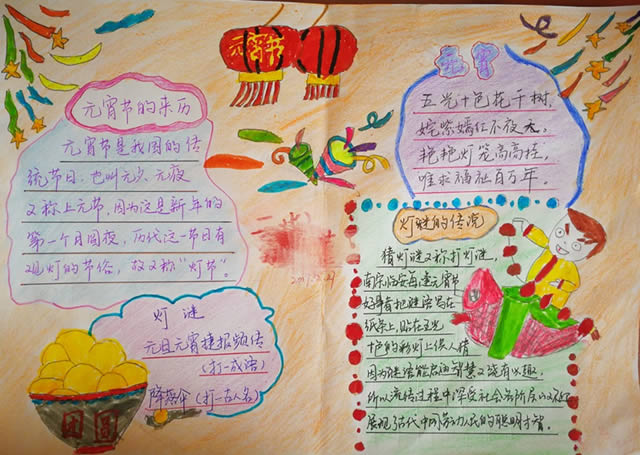 元宵节
元宵节的来历
元宵节是我国的传
统节日,也叫元夕、元夜
又称上元节,因为这是新年的
第一个月圆夜,历代这一节日有
观灯的节俗,故又称“灯节”。
元宵
五光十色花千树,
姹紫嫣红不夜天。
艳艳灯笼高高挂,
唯求福祉百万年。
灯谜的传说
猜灯谜又称打灯谜,
南宋临安每逢元宵节
好事者把谜语写在
纸条上,贴在五光
十色的彩灯上供人猜
因为谜语能启迪智慧又饶有兴趣,
所以流传过程中深受社会各阶层的欢迎
展现了古代中国劳动人民的聪明才智。
灯谜
元旦元宵捷报频传
(打一成语)
降落伞(打一古人名)
团圆